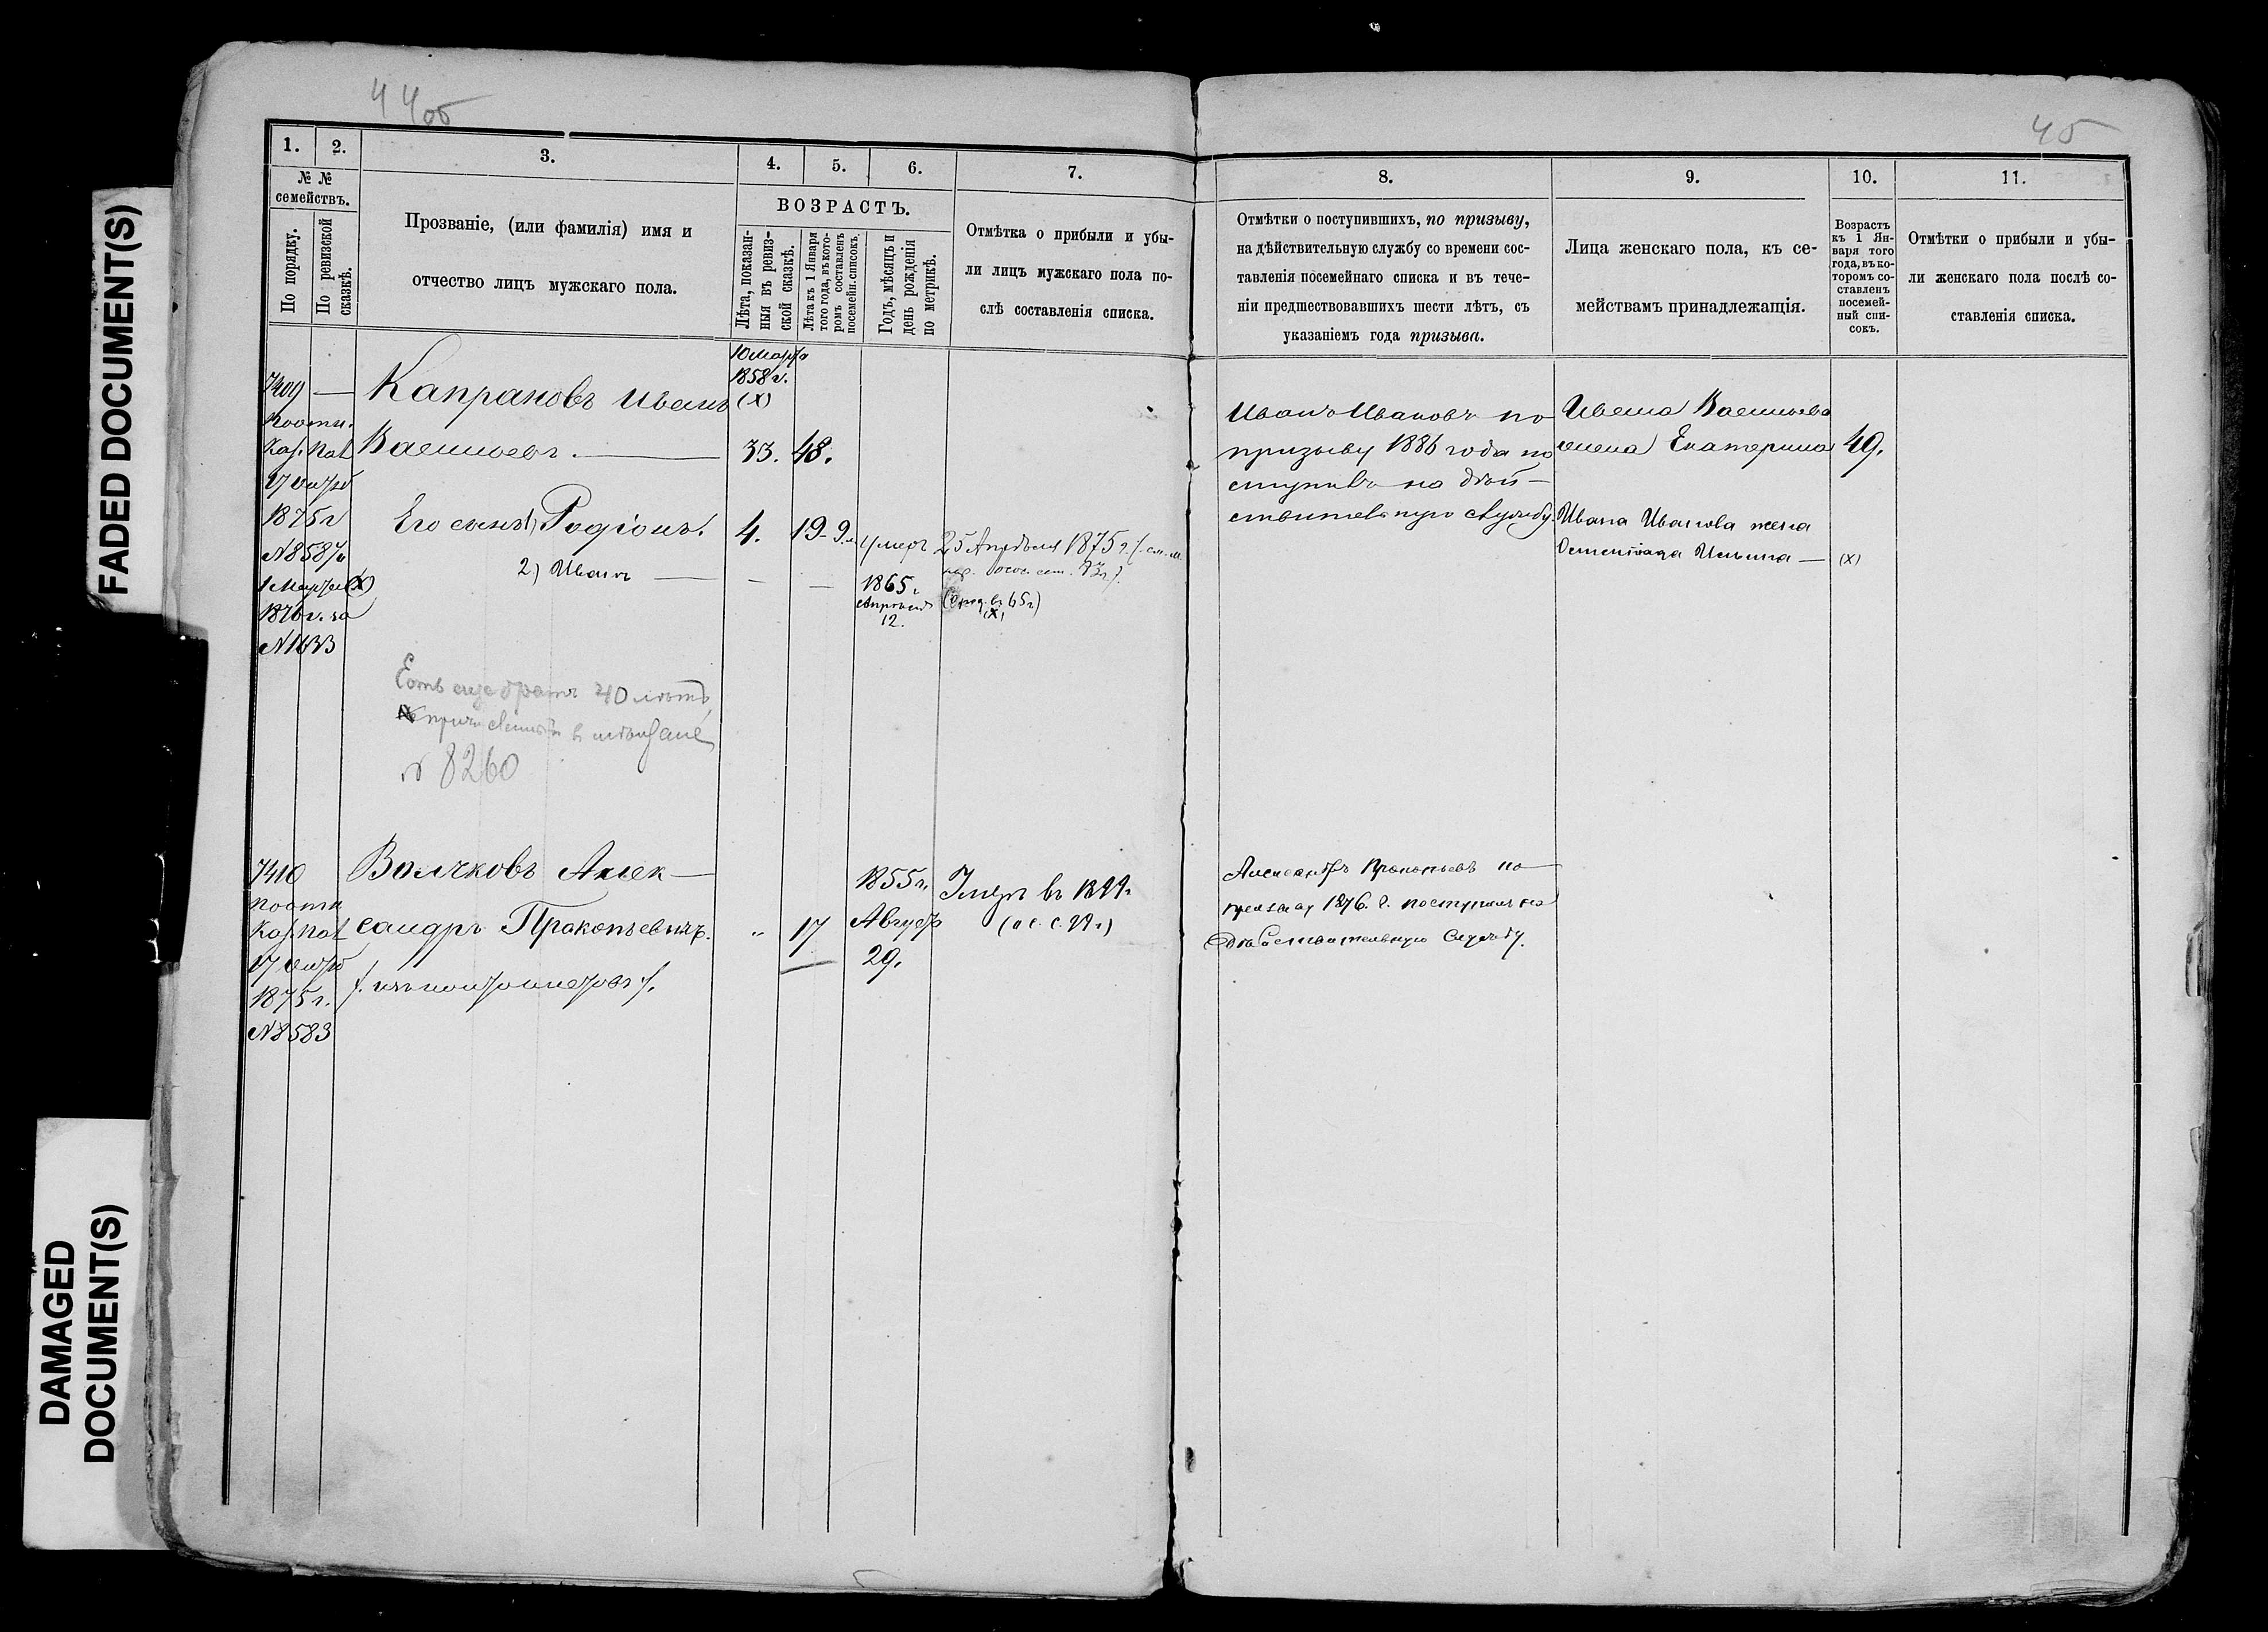 44об
45
FADED DOCUMENT(S)
DAMAGED
DOCUMENT(S)
1.
2.
3.
4.
5.
6.
7.
№ №
семействъ.
По порядку.
По ревизской
сказкѣ.
Прозваніе, (или фамилія) имя и
отчество лицъ мужскаго пола.
ВОЗРАСТЪ.
Лѣта, показан-
ныя въ ревиз-
ской сказкѣ.
Лѣта къ 1 Января
того года, въ кото-
ромъ составленъ
посемейн. списокъ.
Годъ, мѣсяцъ и
день рожденія
по метрикѣ.
Отмѣтка о прибыли и убы-
ли лицъ мужскаго пола по-
слѣ составленія списка.
7409 —
Каз. Пал
1875 г
1 Марта (х)
1876 г. за
N1633
Капрановъ Иванъ
Васильевъ. —
Его сынъ 1) Родіонъ.
2) Иванъ —
10 Марта
1858 г.
(х)
33. 48.
4. 19
умеръ 25 Апрѣля 1875 г.
1865 г
12.
(х)
Есть еще братъ 40 лѣтъ,
№ 8260
7410
Каз. Пал
1875 г.
N8583
Волчковъ Алек—
сандръ Прокопьевичъ.
17
1855 г.
Август
29.
8.
9.
10.
11.
Отмѣтки о поступившихъ, по призыву,
на дѣйствительную службу со времени сос-
тавленія посемейнаго списка и въ тече-
ніи предшествовавшихъ шести лѣтъ, съ
указаніемъ года призыва.
Лица женскаго пола, къ се-
мействамъ принадлежащія.
Возрастъ
къ 1 Ян-
варя того
года, въ ко-
торомъ со-
ставленъ
посемей-
ный спи-
сокъ.
Отмѣтки о прибыли и убы-
ли женскаго пола послѣ со-
ставленія списка.
Иванъ Ивановъ по
призыву 1886 года по
ступилъ на дѣй—
ствительную службу.
Ивана Васильева
жена Екатерина
49.
Ивана Иванова жена
Ильина —
(х)
Александръ Прокопьевъ по
призыву 1876. г. поступилъ на
дѣйствительную службу.